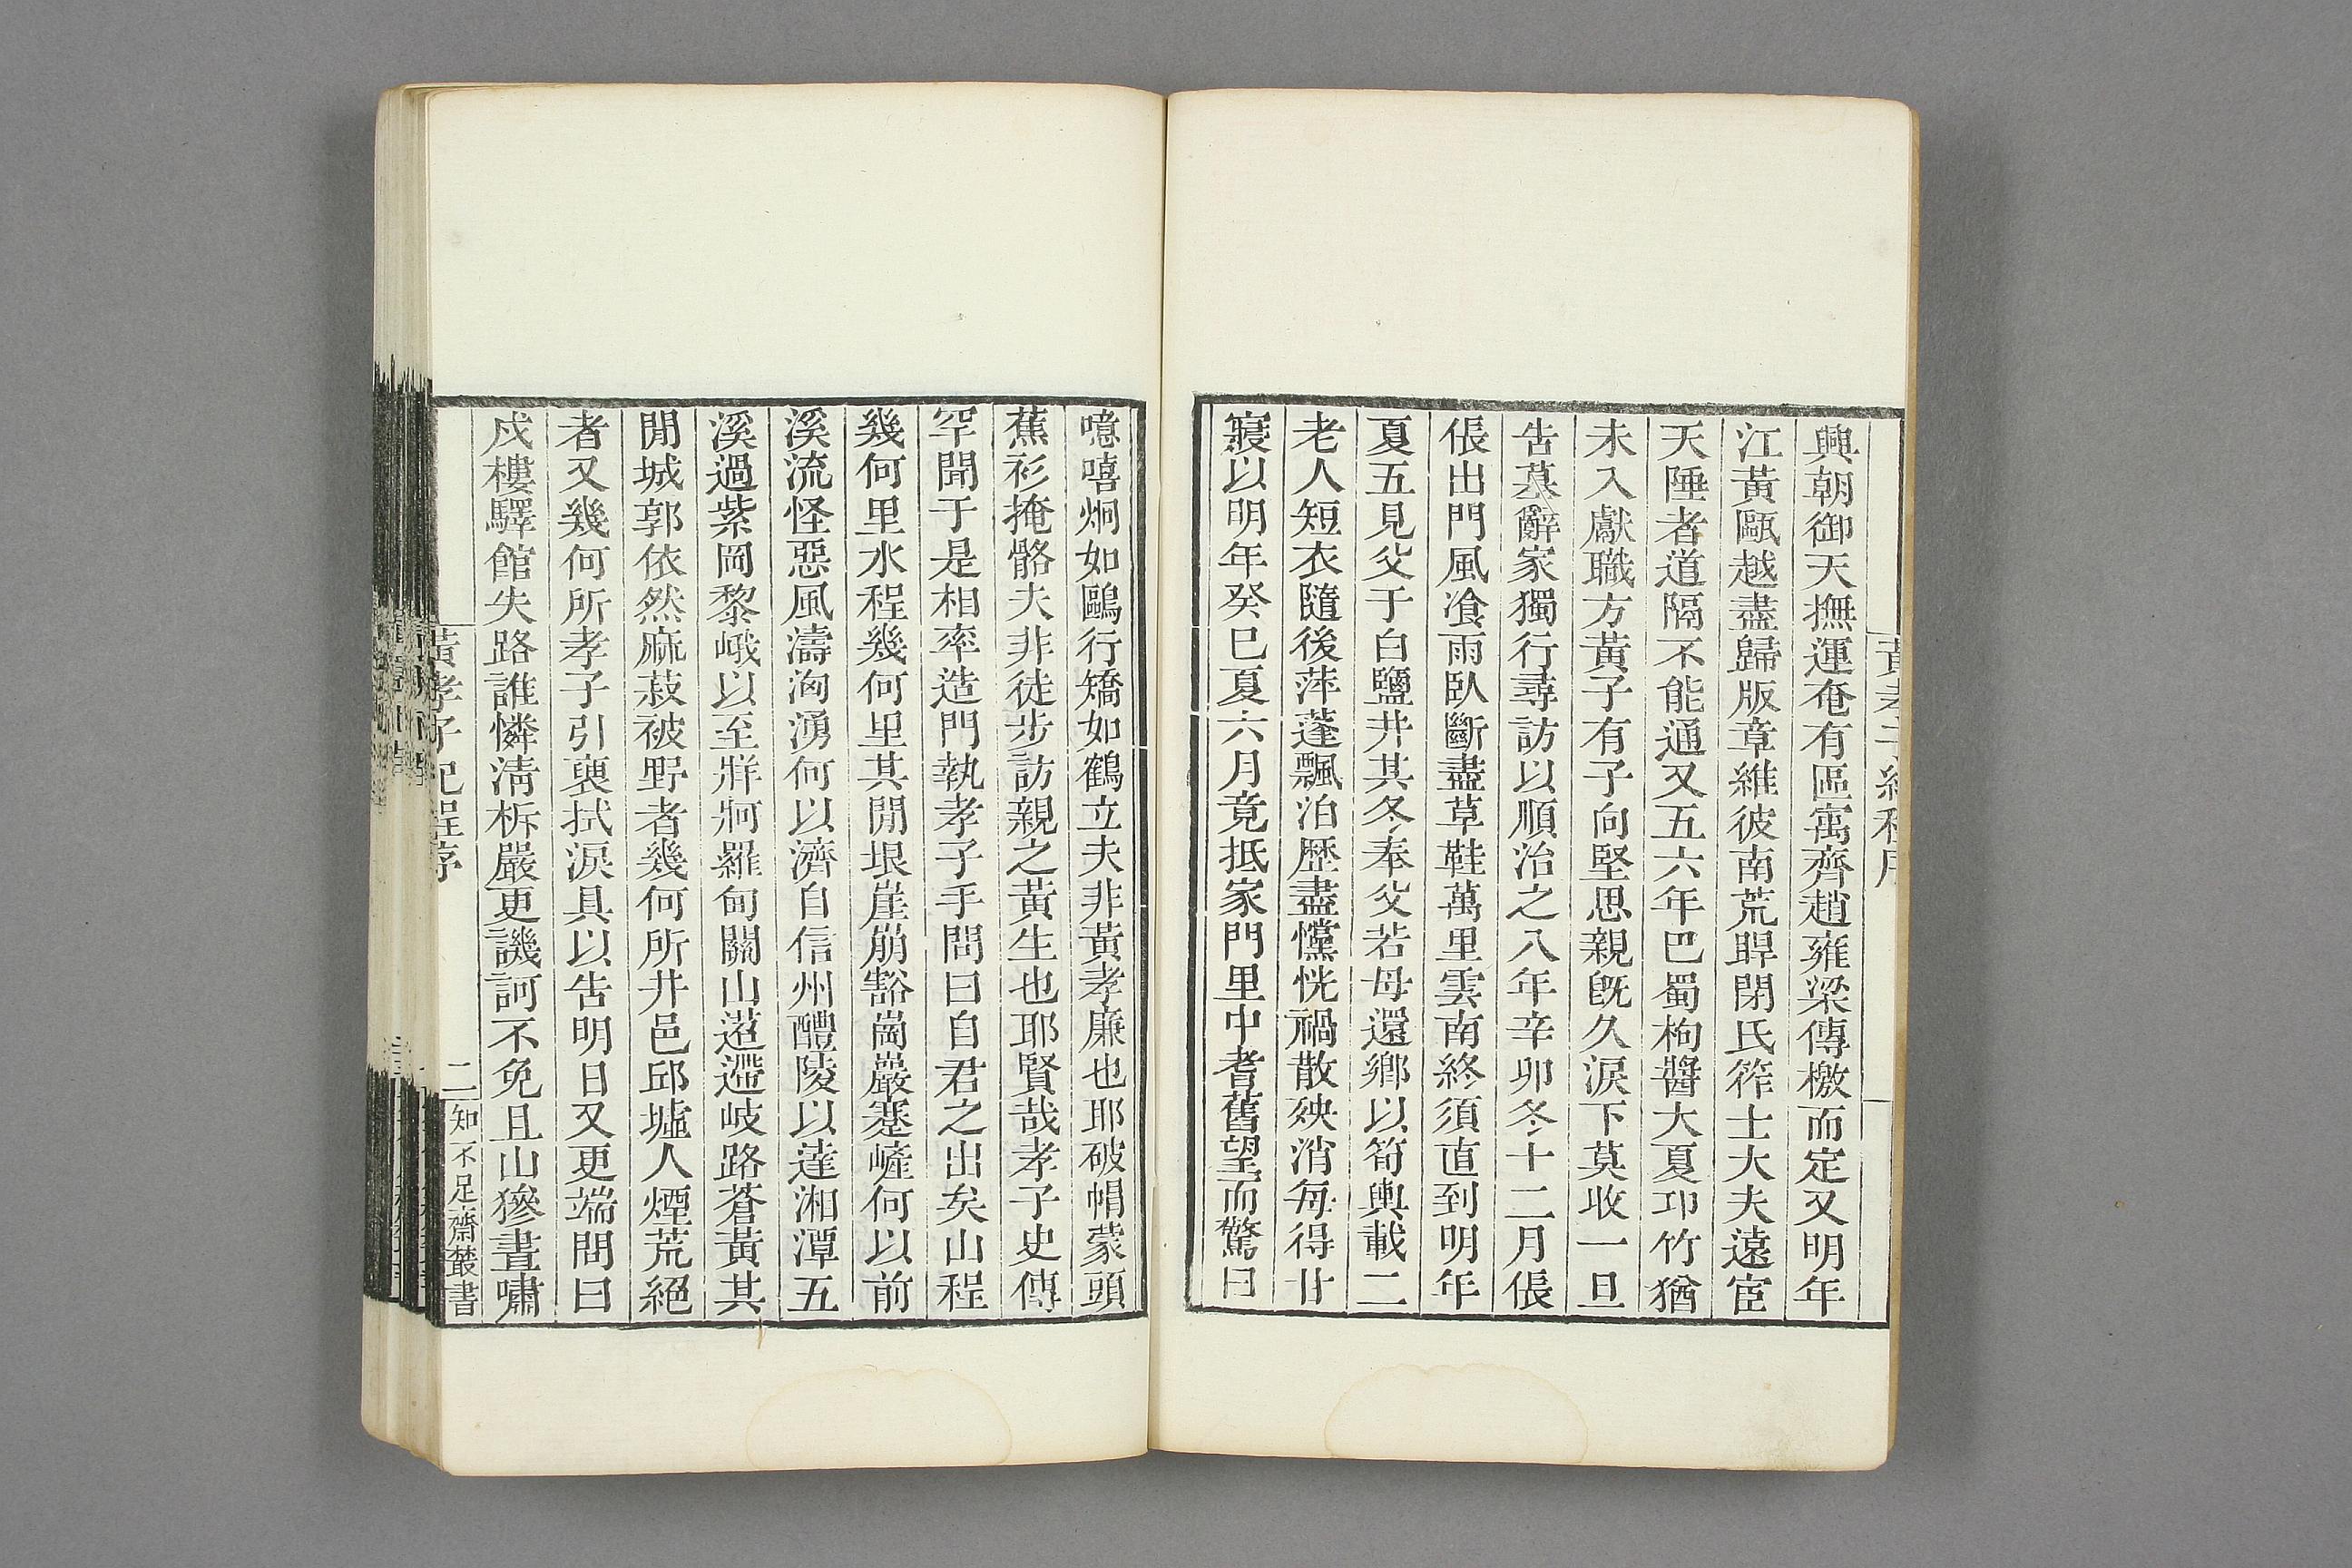 興朝御天撫運奄有區㝢齊趙雍梁傳檄而定又明年
江黃甌越盡歸版章維彼南荒睅閉氐筰士大夫遠宦
天陲者道隔不能通又五六年巴蜀枸醬大夏卭竹猶
未入獻職方黃子有子向堅思親旣久淚下莫收一旦
告墓辭家獨行尋訪以順治之八年辛卯冬十二月倀
倀出門風飡雨臥斷盡草鞋萬里雲南終須直到明年
夏五見父于白鹽井其冬奉父若母還鄕以筍輿載二
老人短衣隨後萍蓬飄泊歷盡戃恍禍散殃消每得甘
寢以明年癸巳夏六月竟抵家門里中耆舊望而驚曰
噫嘻炯如鷗行矯如鶴立夫非黃孝廉也耶破帽蒙頭
蕉衫掩骼夫非徒步訪親之黃生也耶賢哉孝子史傳
罕聞于是相率造門執孝子手問曰自君之出矣山程
幾何里水程幾何里其閒垠崖崩豁崗巖蹇嵼何以前
溪流怪惡風濤洶湧何以濟自信州醴陵以達湘潭五
溪過紫岡黎峨以至牂牁羅甸關山遥遰岐路蒼黃其
閒城郭依然麻菽被野者幾何所井邑邱墟人煙荒絕
者又幾何所孝子引裒拭淚具以告明日又更端問曰
戍樓驛館失路誰憐淸柝嚴更譏訶不免且山㺑晝嘯
黃孝子紀程序
二
知不足齋叢書